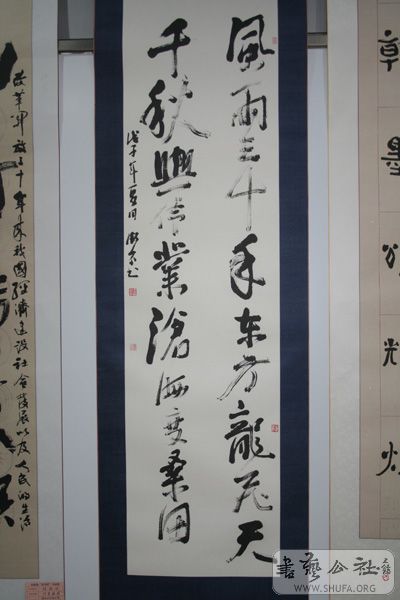 風雨三十年东方龍飞天
千秋興伟業滄海变桑田
戊子年夏月
改革開放三十年來我國經濟建設社会發展以及人民的生活
書藝公社
WWW.SHUFA.ORG